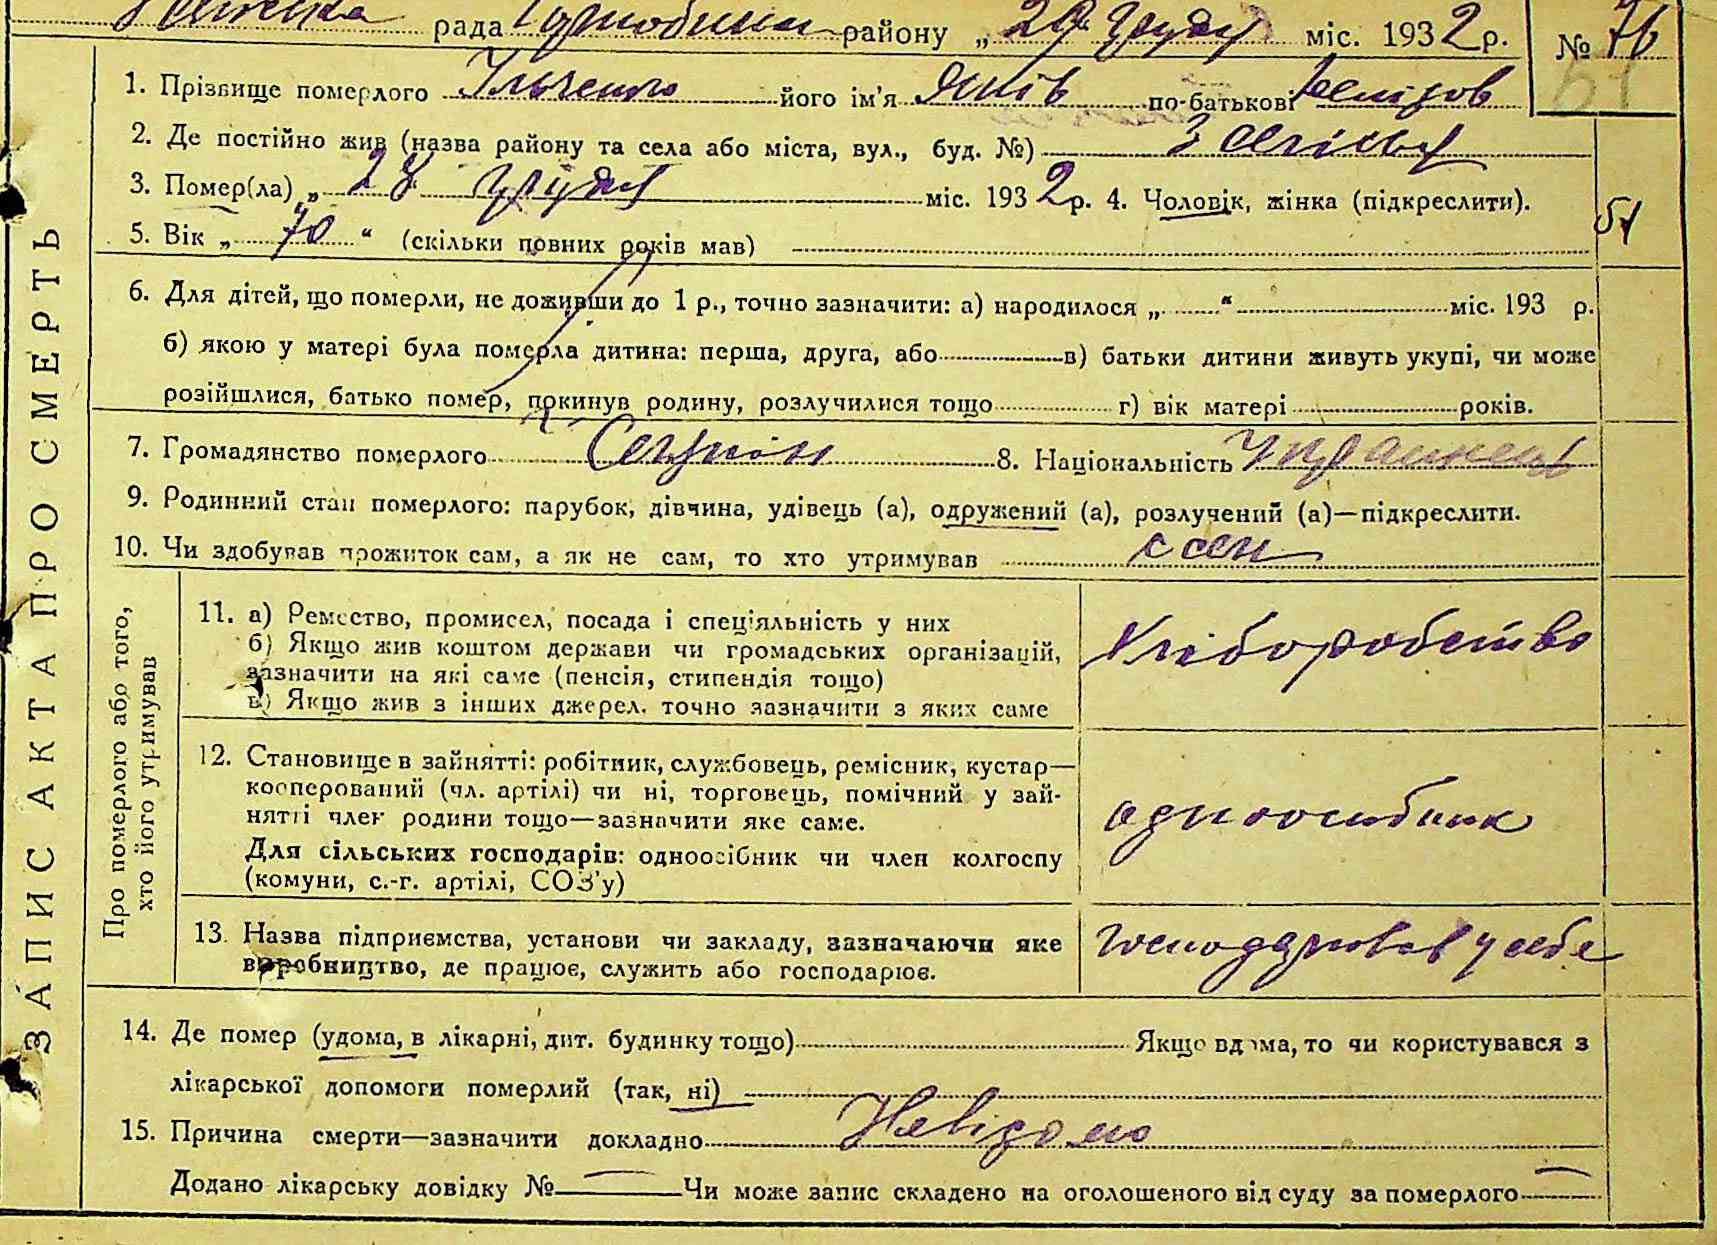 рада района „29 грудня міс. 1932 р. № 76
1. Прізвище померлого Ільченко його ім'я Яків по-батькові
51
2. Де постійно жив (назва району та села або міста, вул., буд. №)
3. Помер(ла) „ 28 грудня міс. 1932 р. 4. Чоловік, жінка (підкреслити).
5. Вік „ 70 “ (скільки повних років мав)
51
6. Для дітей, що померли, не доживши до 1 р., точно зазначити: а) народилося „ “ міс. 193 р.
б) якою у матері була померла дитина: перша, друга, або в) батьки дитини живуть укупі, чи може
розійшлися, батько помер, покинув родину, розлучилися тощо г) вік матері років.
7. Громадянство померлого 8. Національність Украинець
9. Родинний стан померлого: парубок, дівчина, удівець (а), одружений (а), розлучений (а)—підкреслити.
10. Чи здобував прожиток сам, а як не сам, то хто утримував сам
ЗАПИС АКТА ПРО СМЕРТЬ
Про померлого або того,
хто його утримував
11. а) Ремество, промисел, посада і спеціяльність у них
б) Якщо жив коштом держави чи громадських організацій,
зазначити на які саме (пенсія, стипендія тощо)
в) Якщо жив з інших джерел, точно зазначити з яких саме
Хліборобство
12. Становище в зайнятті: робітник, службовець, ремісник, кустар—
кооперований (чл. артілі) чи ні, торговець, помічний у зай-
нятті член родини тощо—зазначити яке саме.
Для сільських господарів: одноосібник чи член колгоспу
(комуни, с.-г. артілі, СОЗ'у)
одноосібник
13. Назва підприємства, установи чи закладу, зазначаючи яке
виробництво, де працює, служить або господарює.
господарював у себе
14. Де помер (удома, в лікарні, дит. будинку тощо) Якщо вдома, то чи користувався з
лікарської допомоги померлий (так, ні)
15. Причина смерти—зазначити докладно Невідомо
Додано лікарську довідку № Чи може запис складено на оголошеного від суду за померлого